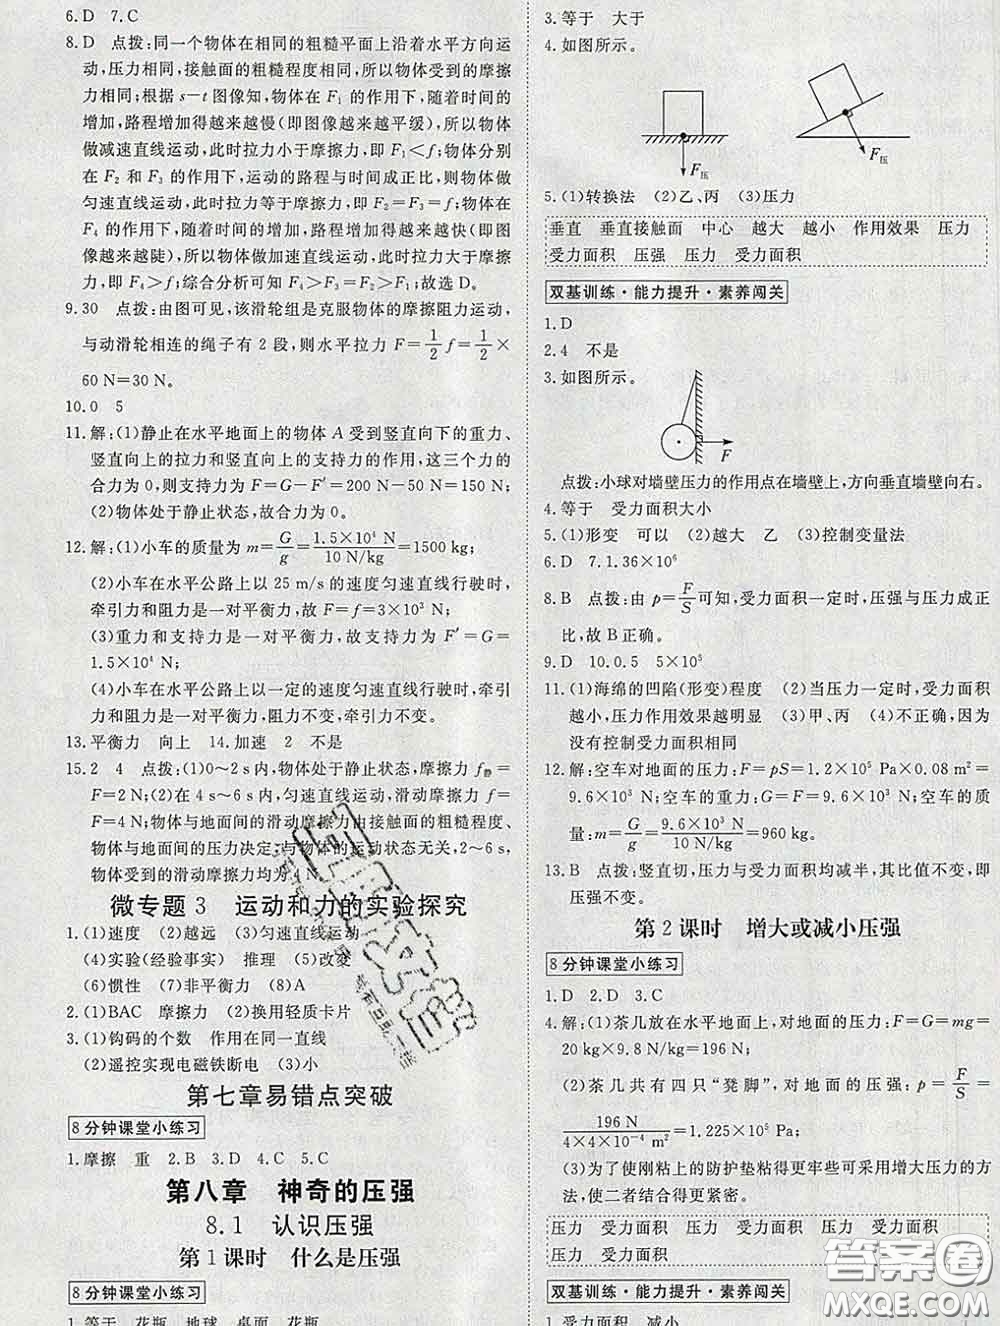 6.D　7.C
8.D　点拨:同一个物体在相同的粗糙平面上沿着水平方向运
动,压力相同,接触面的粗糙程度相同,所以物体受到的摩擦
力相同;根据 s-t 图像知,物体在 F₁ 的作用下,随着时间的
增加,路程增加得越来越慢(即图像越来越平缓),所以物体
做减速直线运动,此时拉力小于摩擦力,即 F₁<f;物体分别
在 F₂ 和 F₃ 的作用下,运动的路程与时间成正比,则物体做
匀速直线运动,此时拉力等于摩擦力,即 F₂=F₃=f;物体在
F₄ 的作用下,随着时间的增加,路程增加得越来越快(即图
像越来越陡),所以物体做加速直线运动,此时拉力大于摩擦
力,即 F₄>f;综合分析可知 F₄>F₃=F₂>F₁;故选 D。
9.30　点拨:由图可见,该滑轮组是克服物体的摩擦阻力运动,
与动滑轮相连的绳子有 2 段,则水平拉力 F=1/2 f=1/2×
60 N=30 N。
10.0　5
11.解:(1)静止在水平地面上的物体 A 受到竖直向下的重力、
竖直向上的拉力和竖直向上的支持力的作用,这三个力的
合力为 0,则支持力为 F=G-F′=200 N-50 N=150 N;
(2)物体处于静止状态,故合力为 0。
12.解:(1)小车的质量为 m=G/g=1.5×10⁴ N/10 N/kg=1500 kg;
(2)小车在水平公路上以 25 m/s 的速度匀速直线行驶时,
牵引力和阻力是一对平衡力,故 F=f=3×10³ N;
(3)重力和支持力是一对平衡力,故支持力为 F′=G=
1.5×10⁴ N;
(4)小车在水平公路上以一定的速度匀速直线行驶时,牵引
力和阻力是一对平衡力,阻力不变,牵引力不变。
13.平衡力　向上　14.加速　2　不是
15.2　4　点拨:(1)0～2 s 内,物体处于静止状态,摩擦力 f静=
F=2 N;(2)在 4 s～6 s 内,匀速直线运动,滑动摩擦力
f=F=4 N;物体与地面间的滑动摩擦力由接触面的粗糙程度、
物体与地面间的压力决定,与物体的运动状态无关,2～6 s,
物体受到的滑动摩擦力均为 4 N
微专题 3　运动和力的实验探究
1.(1)速度　(2)越远　(3)匀速直线运动
(4)实验(经验事实)　推理　(5)改变
(6)惯性　(7)非平衡力　(8)A
2.(1)BAC　摩擦力　(2)换用轻质卡片
3.(1)钩码的个数　作用在同一直线
(2)遥控实现电磁铁断电　(3)小
第七章易错点突破
8 分钟课堂小练习
1.摩擦　重　2.B　3.D　4.C　5.C
第八章　神奇的压强
8.1　认识压强
第 1 课时　什么是压强
8 分钟课堂小练习
1.等于　花瓶　地球　桌面　花瓶
3.等于　大于
4.如图所示。
F压
F压
5.(1)转换法　(2)乙、丙　(3)压力
垂直　垂直接触面　中心　越大　越小　作用效果　压力
受力面积　压强　压力　受力面积
双基训练·能力提升·素养闯关
1.D
2.4　不是
3.如图所示。
F
点拨:小球对墙壁压力的作用点在墙壁上,方向垂直墙壁向右。
4.等于　受力面积大小
5.(1)形变　可以　(2)越大　乙　(3)控制变量法
6.D　7.1.36×10⁶
8.B　点拨:由 p=F/S可知,受力面积一定时,压强与压力成正
比,故 B 正确。
9.D　10.0.5　5×10⁵
11.(1)海绵的凹陷(形变)程度　(2)当压力一定时,受力面积
越小,压力作用效果越明显　(3)甲、丙　(4)不正确,因为
没有控制受力面积相同
12.解:空车对地面的压力:F=pS=1.2×10⁵ Pa×0.08 m²=
9.6×10³ N;空车的重力:G=F=9.6×10³ N;空车的质
量:m=G/g=9.6×10³ N/10 N/kg=960 kg。
13.B　点拨:竖直切,压力与受力面积均减半,其比值不变,即
压强不变。
第 2 课时　增大或减小压强
8 分钟课堂小练习
1.D　2.D　3.C
4.解:(1)茶几放在水平地面上,对地面的压力:F=G=mg=
20 kg×9.8 N/kg=196 N;
(2)茶几共有四只“凳脚”,对地面的压强:p=F/S=
196 N/4×4×10⁻⁴ m²=1.225×10⁵ Pa;
(3)为了使刚粘上的防护垫粘得更牢些可采用增大压力的方
法,使二者结合得更紧密。
压力　受力面积　压力　受力面积　压力　受力面积
压力　受力面积
双基训练·能力提升·素养闯关
1.受力面积　减小
答案圈
MXQE.COM